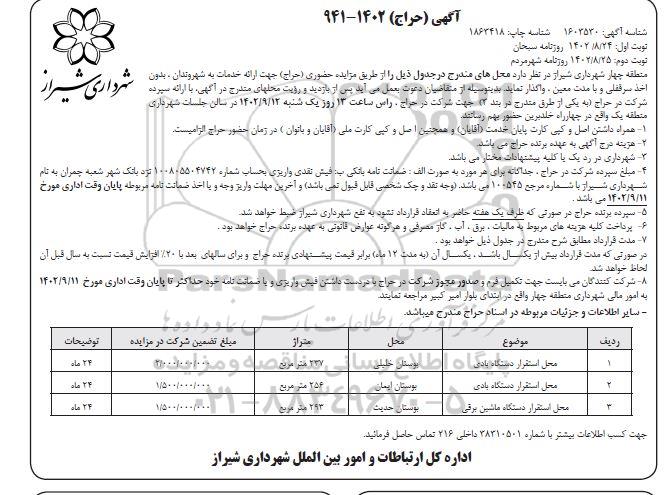 آگهی (حراج) ۱۴۰۲-۹۴۱
شناسه آگهی: ۱۶۰۳۵۳۰ شناسه چاپ: ۱۸۶۳۴۱۸
نوبت اول: ۱۴۰۲/۸/۲۴ روزنامه سبحان
نوبت دوم: ۱۴۰۲/۸/۲۵ روزنامه شهرمردم
شهرداری شیراز
منطقه چهار شهرداری شیراز در نظر دارد محل های مندرج درجدول ذیل را از طریق مزایده حضوری (حراج) جهت ارائه خدمات به شهروندان ، بدون
اخذ سرقفلی و با مدت معین ، واگذار نماید. بدینوسیله از متقاضیان دعوت بعمل می آید پس از بازدید و رؤیت محلهای مندرج در آگهی، با ارائه سپرده
شرکت در حراج (به یکی از طرق مندرج در بند ۴) جهت شرکت در حراج ، راس ساعت ۱۳ روز یک شنبه ۱۴۰۲/۹/۱۲ در سالن جلسات شهرداری
منطقه یک واقع در چهارراه خلدبرین حضور بهم رسانند.
۱- همراه داشتن اصل و کپی کارت پایان خدمت (آقایان) و همچنین اصل و کپی کارت ملی (آقایان و بانوان ) در زمان حضور حراج الزامیست.
۲- هزینه درج آگهی به عهده برنده حراج می باشد.
۳- شهرداری در رد یک یا کلیه پیشنهادات مختار می باشد.
۴- مبلغ سپرده شرکت در حراج ، جداگانه برای هر مورد به صورت الف : ضمانت نامه بانکی ب: فیش نقدی واریزی بحساب شماره ۱۰۰۸۰۵۵۰۴۷۴۲ نزد بانک شهر شعبه چمران به نام
شهرداری شیراز با شماره مرجع ۱۰۰۵۴۵ می باشد. (وجه نقد و چک شخصی قابل قبول نمی باشد) و آخرین مهلت واریز وجه و یا اخذ ضمانت نامه مربوطه پایان وقت اداری مورخ
۱۴۰۲/۹/۱۱ می باشد .
۵- سپرده برنده حراج در صورتی که ظرف یک هفته حاضر به انعقاد قرارداد نشود به نفع شهرداری شیراز ضبط خواهد شد.
۶- پرداخت کلیه هزینه های مربوط به مالیات ، برق ، آب ، گاز مصرفی و هرگونه عوارض قانونی به عهده برنده حراج خواهد بود .
۷- مدت قرارداد مطابق شرح مندرج در جدول ذیل خواهد بود .
در صورتی که مدت قرارداد بیش از یکسال باشد ، یکسال آن (به مدت ۱۲ ماه) برابر قیمت پیشنهادی برنده حراج و برای سالهای بعد با ۲۰٪ افزایش قیمت نسبت به سال قبل آن
لحاظ خواهد شد.
۸- شرکت کنندگان می بایست جهت تکمیل فرم و صدور مجوز شرکت در حراج با دردست داشتن فیش واریزی و یا ضمانت نامه خود حداکثر تا پایان وقت اداری مورخ ۱۴۰۲/۹/۱۱
به امور مالی شهرداری منطقه چهار واقع در ابتدای بلوار امیر کبیر مراجعه نمایند.
- سایر اطلاعات و جزئیات مربوطه در اسناد حراج مندرج میباشد.
ردیف موضوع محل متراژ مبلغ تضمین شرکت در مزایده توضیحات
۱ محل استقرار دستگاه بادی بوستان خلیلی ۲۳۷ متر مربع ۲/۰۰۰/۰۰۰/۰۰۰ ۲۴ ماه
۲ محل استقرار دستگاه بادی بوستان ایمان ۲۵۴ متر مربع ۱/۵۰۰/۰۰۰/۰۰۰ ۲۴ ماه
۳ محل استقرار دستگاه ماشین برقی بوستان حدیث ۲۹۳ متر مربع ۱/۵۰۰/۰۰۰/۰۰۰ ۲۴ ماه
جهت کسب اطلاعات بیشتر با شماره ۳۸۳۱۰۵۰۱ داخلی ۲۱۶ تماس حاصل فرمائید.
اداره کل ارتباطات و امور بین الملل شهرداری شیراز
ParsNamadData
مرکز فرآوری اطلاعات پارس نماد داده ها
پایگاه اطلاع رسانی مناقصه و مزایده
۰۲۱-۸۸۳۴۹۶۷۰-۵